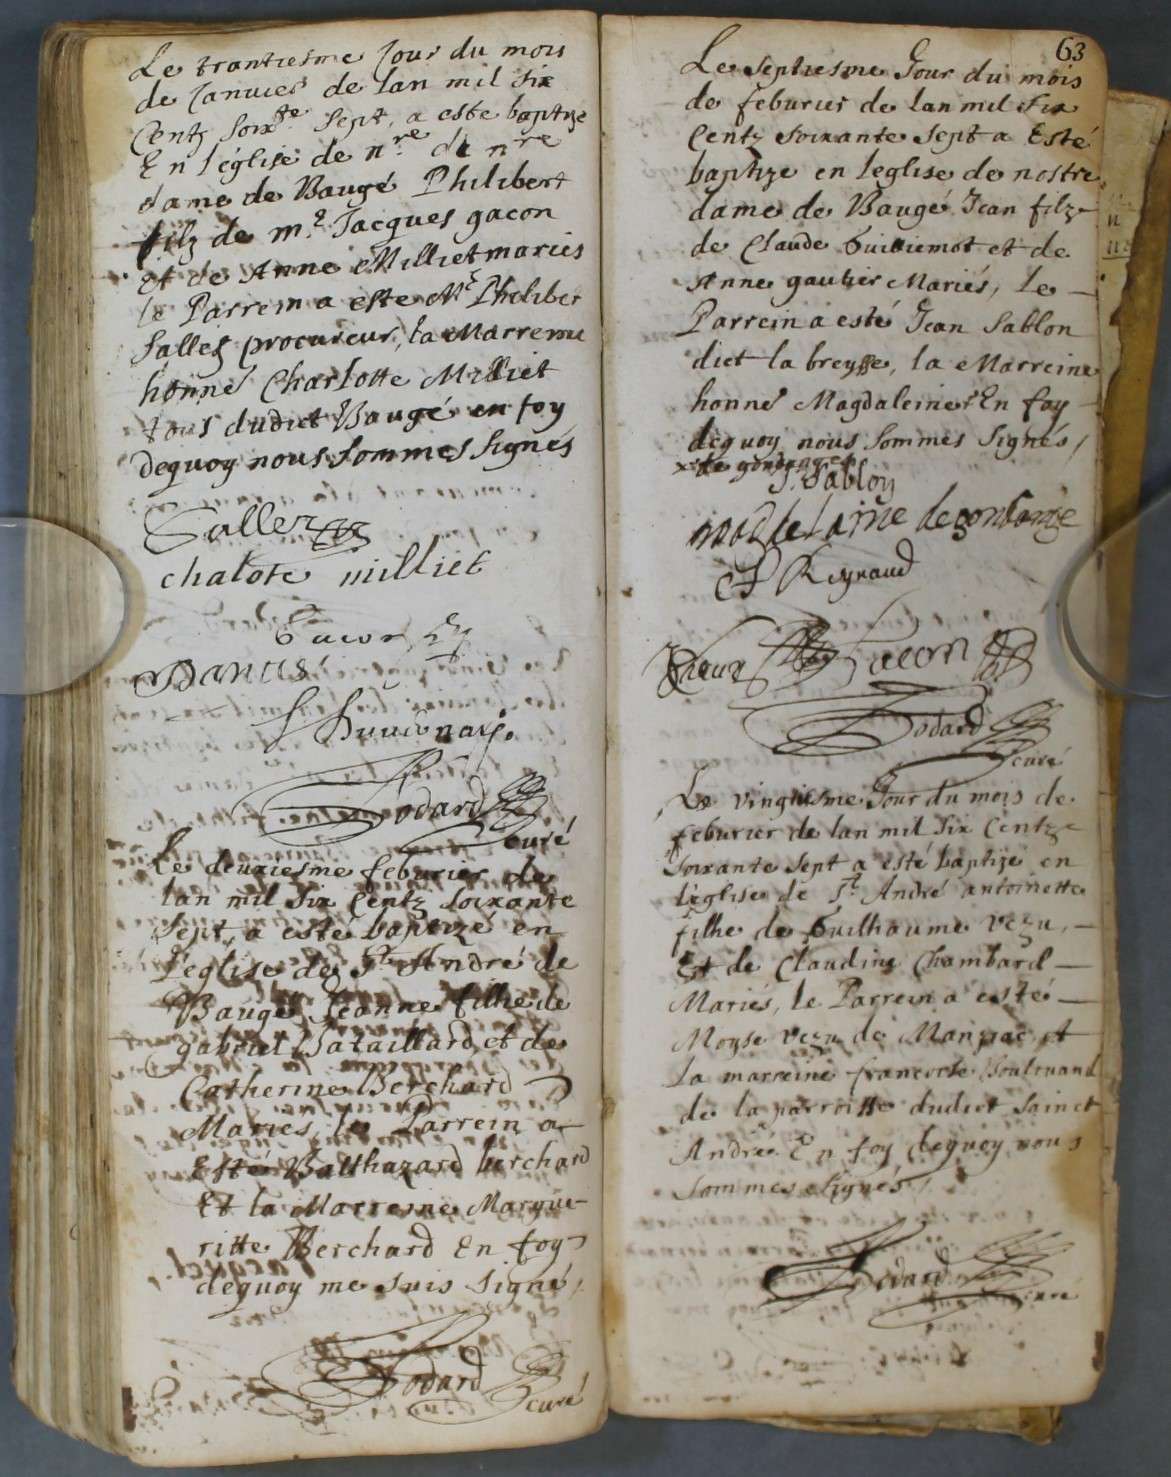 Le trantiesme Jour du mois
de Januier de lan mil six
Centz soixte sept, a esté baptize
En léglise de nre de nre
dame de Baugé Philibert
filz de mr Jacques gacon
et de Anne Milliet mariés
le Parrein a esté Mr Philiber
Sallez procureur, la Marreine
honne Charlotte Milliet
tous dudict Baugé en foy
dequoy nous sommes signés
Sallez
chalote milliet
Godard
curé
Le deuxiesme feburier de
lan mil six Centz soixante
sept, a esté baptizé en
l'église de St André de
Baugé Jeanne filhe de
gabriel Bataillard et de
Catherine Berchard
Mariés, le Parrein a
Esté Balthazard berchard
Et la Marreine Margue-
ritte Berchard En foy
dequoy me suis signé,
Godard
curé
63
Le septiesme Jour du mois
de feburier de lan mil six
Centz soixante sept a Esté
baptize en leglise de nostre
dame de Baugé Jean filz
de Claude Guilliemot et de
Anne gautier Mariés, le
Parrein a esté Jean Sablon
dict la breysse, la Marreine
honne Magdaleine En foy
dequoy nous sommes signés,
J. Sablon
Reynaud
Gacon
Godard
curé
Le vingtiesme Jour du mois de
feburier de lan mil six Centz
soixante sept a esté baptize en
léglise de St André antoinette
filhe de Guilhaume Vezu,
Et de Claudine Chambard
Mariés, le Parrein a esté
Moyse Vezu de Manziac, et
la marreine francoise
de la parroisse dudict Sainct
André En foy dequoy nous
sommes signés,
Godard
curé